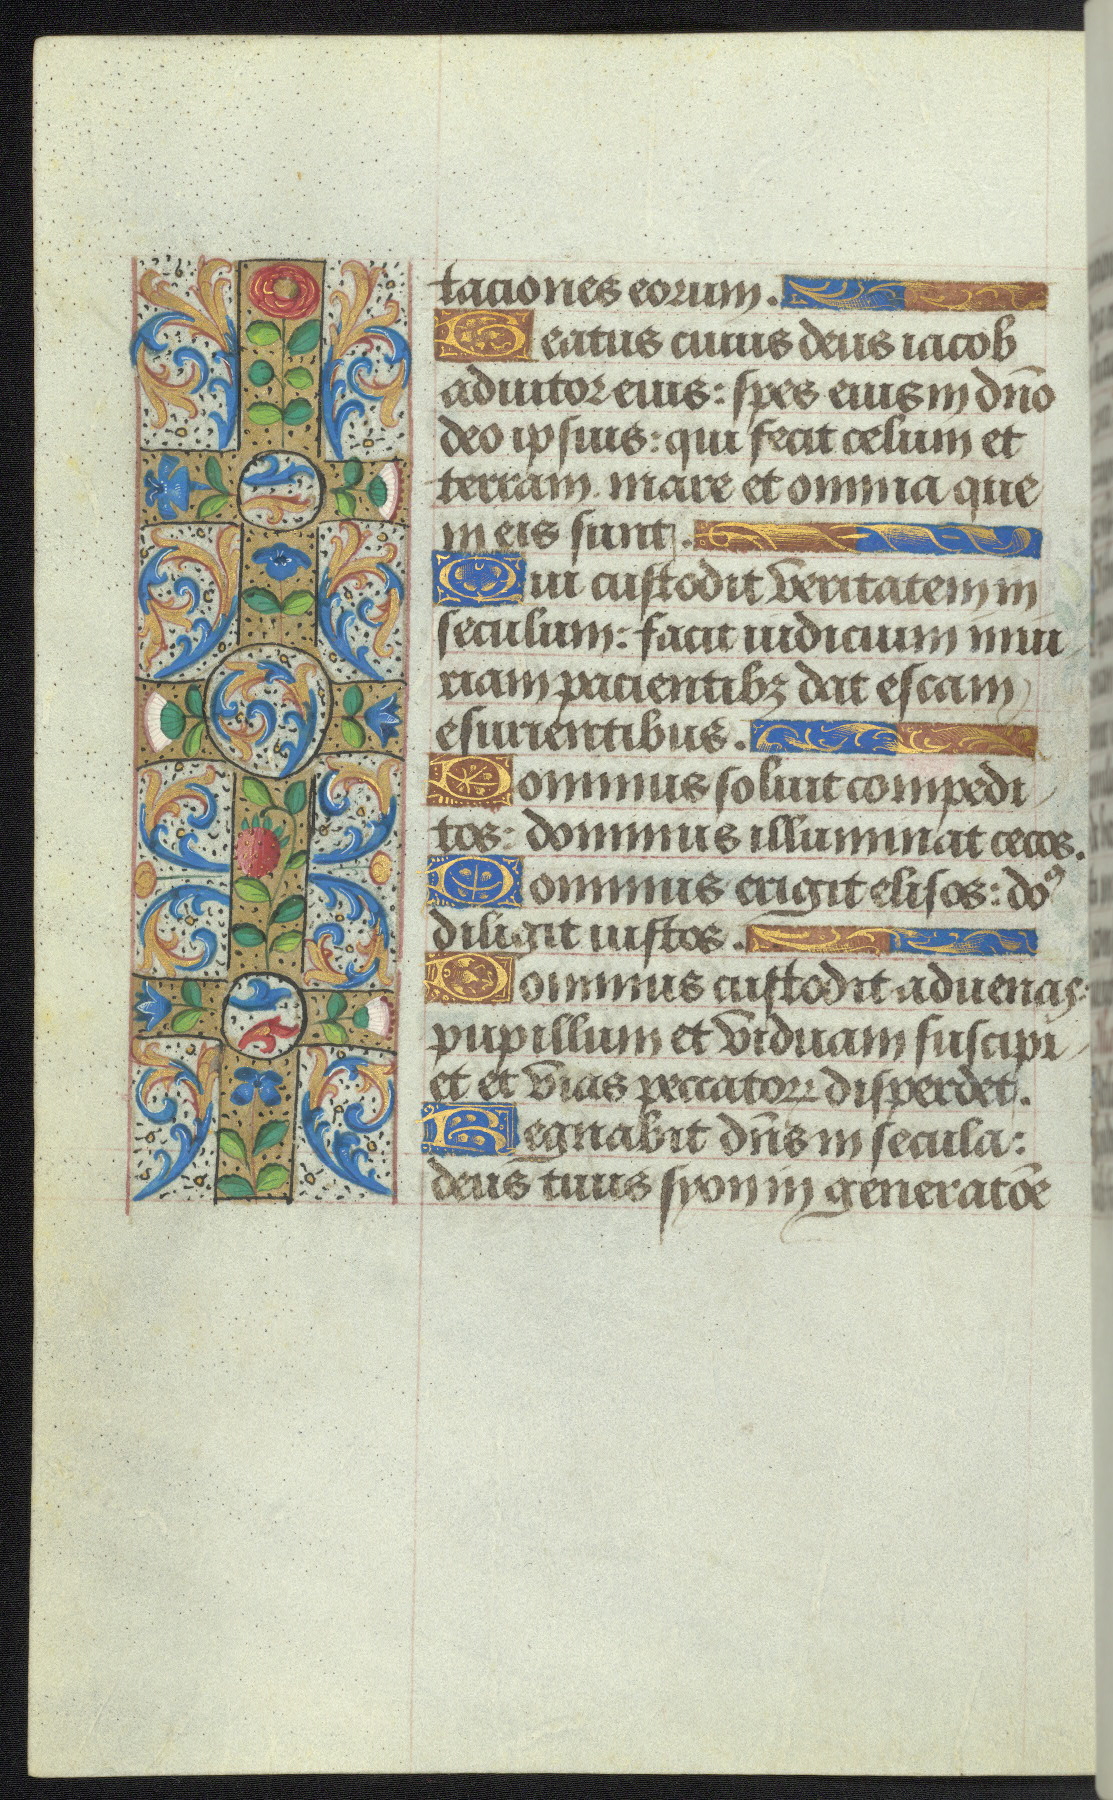 taciones eorum.
Beatus cuius deus iacob
adiutor eius: spes eius in dn̄o
deo ipsius: qui fecit celum et
terram. mare et omnia que
in eis sunt.
Qui custodit veritatem in
seculum: facit iudicium iniu
riam pacientibꝫ dat escam
esurientibus.
Dominus soluit compedi
tos: dominus illuminat cecos.
Dominus erigit elisos: doꝰ
diligit iustos.
Dominus custodit aduenas:
pupillum et viduam suscipi
et et vias peccatoꝝ disperdet.
Regnabit dn̄s in secula:
deus tuus syon in generatōe